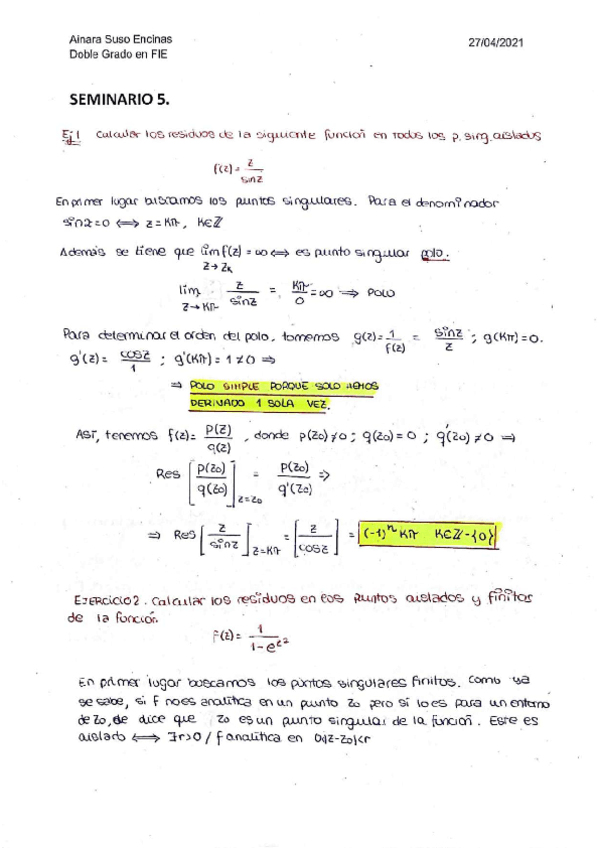 Ainara Suso Encinas
27/04/2021
Doble Grado en FIE
SEMINARIO 5.
Ej 1 Calcular los residuos de la siguiente función en todos los p. sing. aislados
f(z) = z/sinz
En primer lugar buscamos los puntos singulares. Para el denominador
sinz=0 ⟺ z = Kπ, K∈ℤ
Además se tiene que lim f(z) = ∞ ⟺ es punto singular polo.
z→zₖ
lim z/sinz = Kπ/0 = ∞ ⟹ POLO
z→Kπ
Para determinar el orden del polo, tomemos g(z) = 1/f(z) = sinz/z ; g(Kπ)=0.
g'(z) = cosz/1 ; g'(Kπ) = 1 ≠ 0 ⟹
⟹ POLO SIMPLE PORQUE SOLO HEMOS
DERIVADO 1 SOLA VEZ.
ASÍ, tenemos f(z) = p(z)/q(z), donde p(z₀) ≠ 0 ; q(z₀) = 0 ; q'(z₀) ≠ 0 ⟹
Res [p(z₀)/q(z₀)]z=z₀ = p(z₀)/q'(z₀) ⟹
⟹ Res [z/sinz]z=Kπ = [z/cosz] = (-1)ⁿ Kπ K∈ℤ-{0}
EJERCICIO 2. Calcular los residuos en los puntos aislados y finitos
de la función.
F(z) = 1/1-e^z²
En primer lugar buscamos los puntos singulares finitos. Como ya
se sabe, si F no es analítica en un punto z₀ pero sí lo es para un entorno
de z₀, de dice que z₀ es un punto singular de la función. Este es
aislado ⟺ ∃r>0 / f analítica en 0<|z-z₀|<r